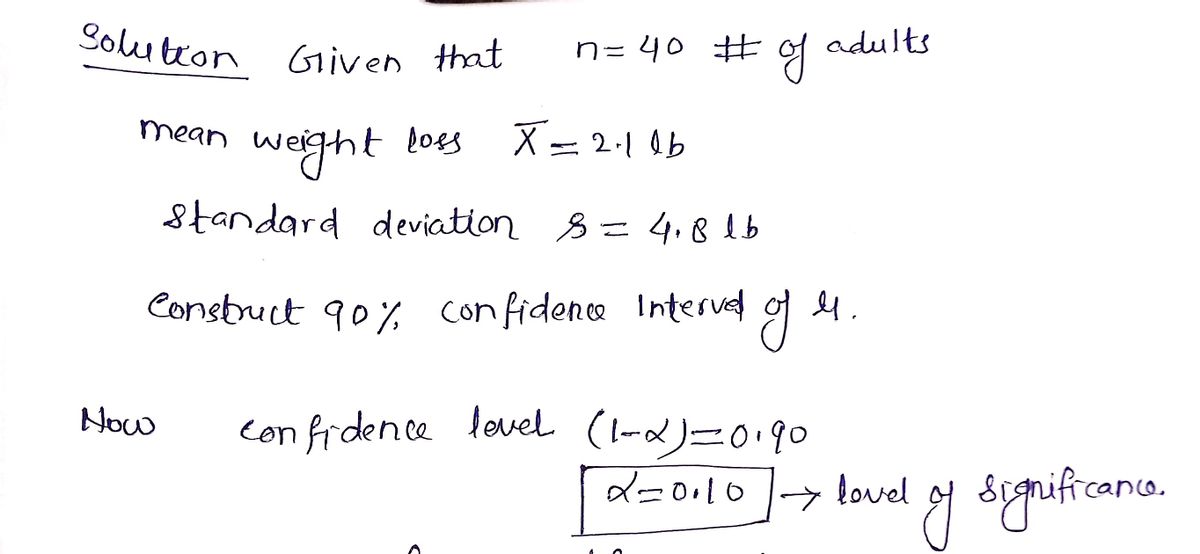 Solution Given that n= 40 # of adults
mean weight loss X̅ = 2.1 lb
standard deviation s = 4.8 lb
Construct 90% confidence Interval of μ.
Now confidence level (1-α)=0.90
α=0.10 → level of significance.